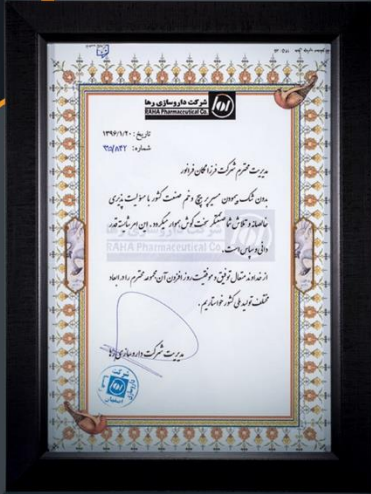 شرکت داروسازی رها
RAHA Pharmaceutical Co.
تاریخ: ۱۳۹۶/۱/۲۰
شماره:
مدیریت محترم شرکت فرزانگان فرانور
بدون شک پیمودن مسیر پر پیچ و خم صنعت کشور با مسئولیت پذیری
و تلاش شما صنعتگر سخت کوش هموار میگردد. این امر شایسته قدر
دانی و سپاس است.
از خداوند متعال توفیق و موفقیت روز افزون آن مجموعه محترم را در ابعاد
مختلف تولید ملی کشور خواستاریم.
مدیریت شرکت داروسازی رها
شرکت داروسازی
اصفهان